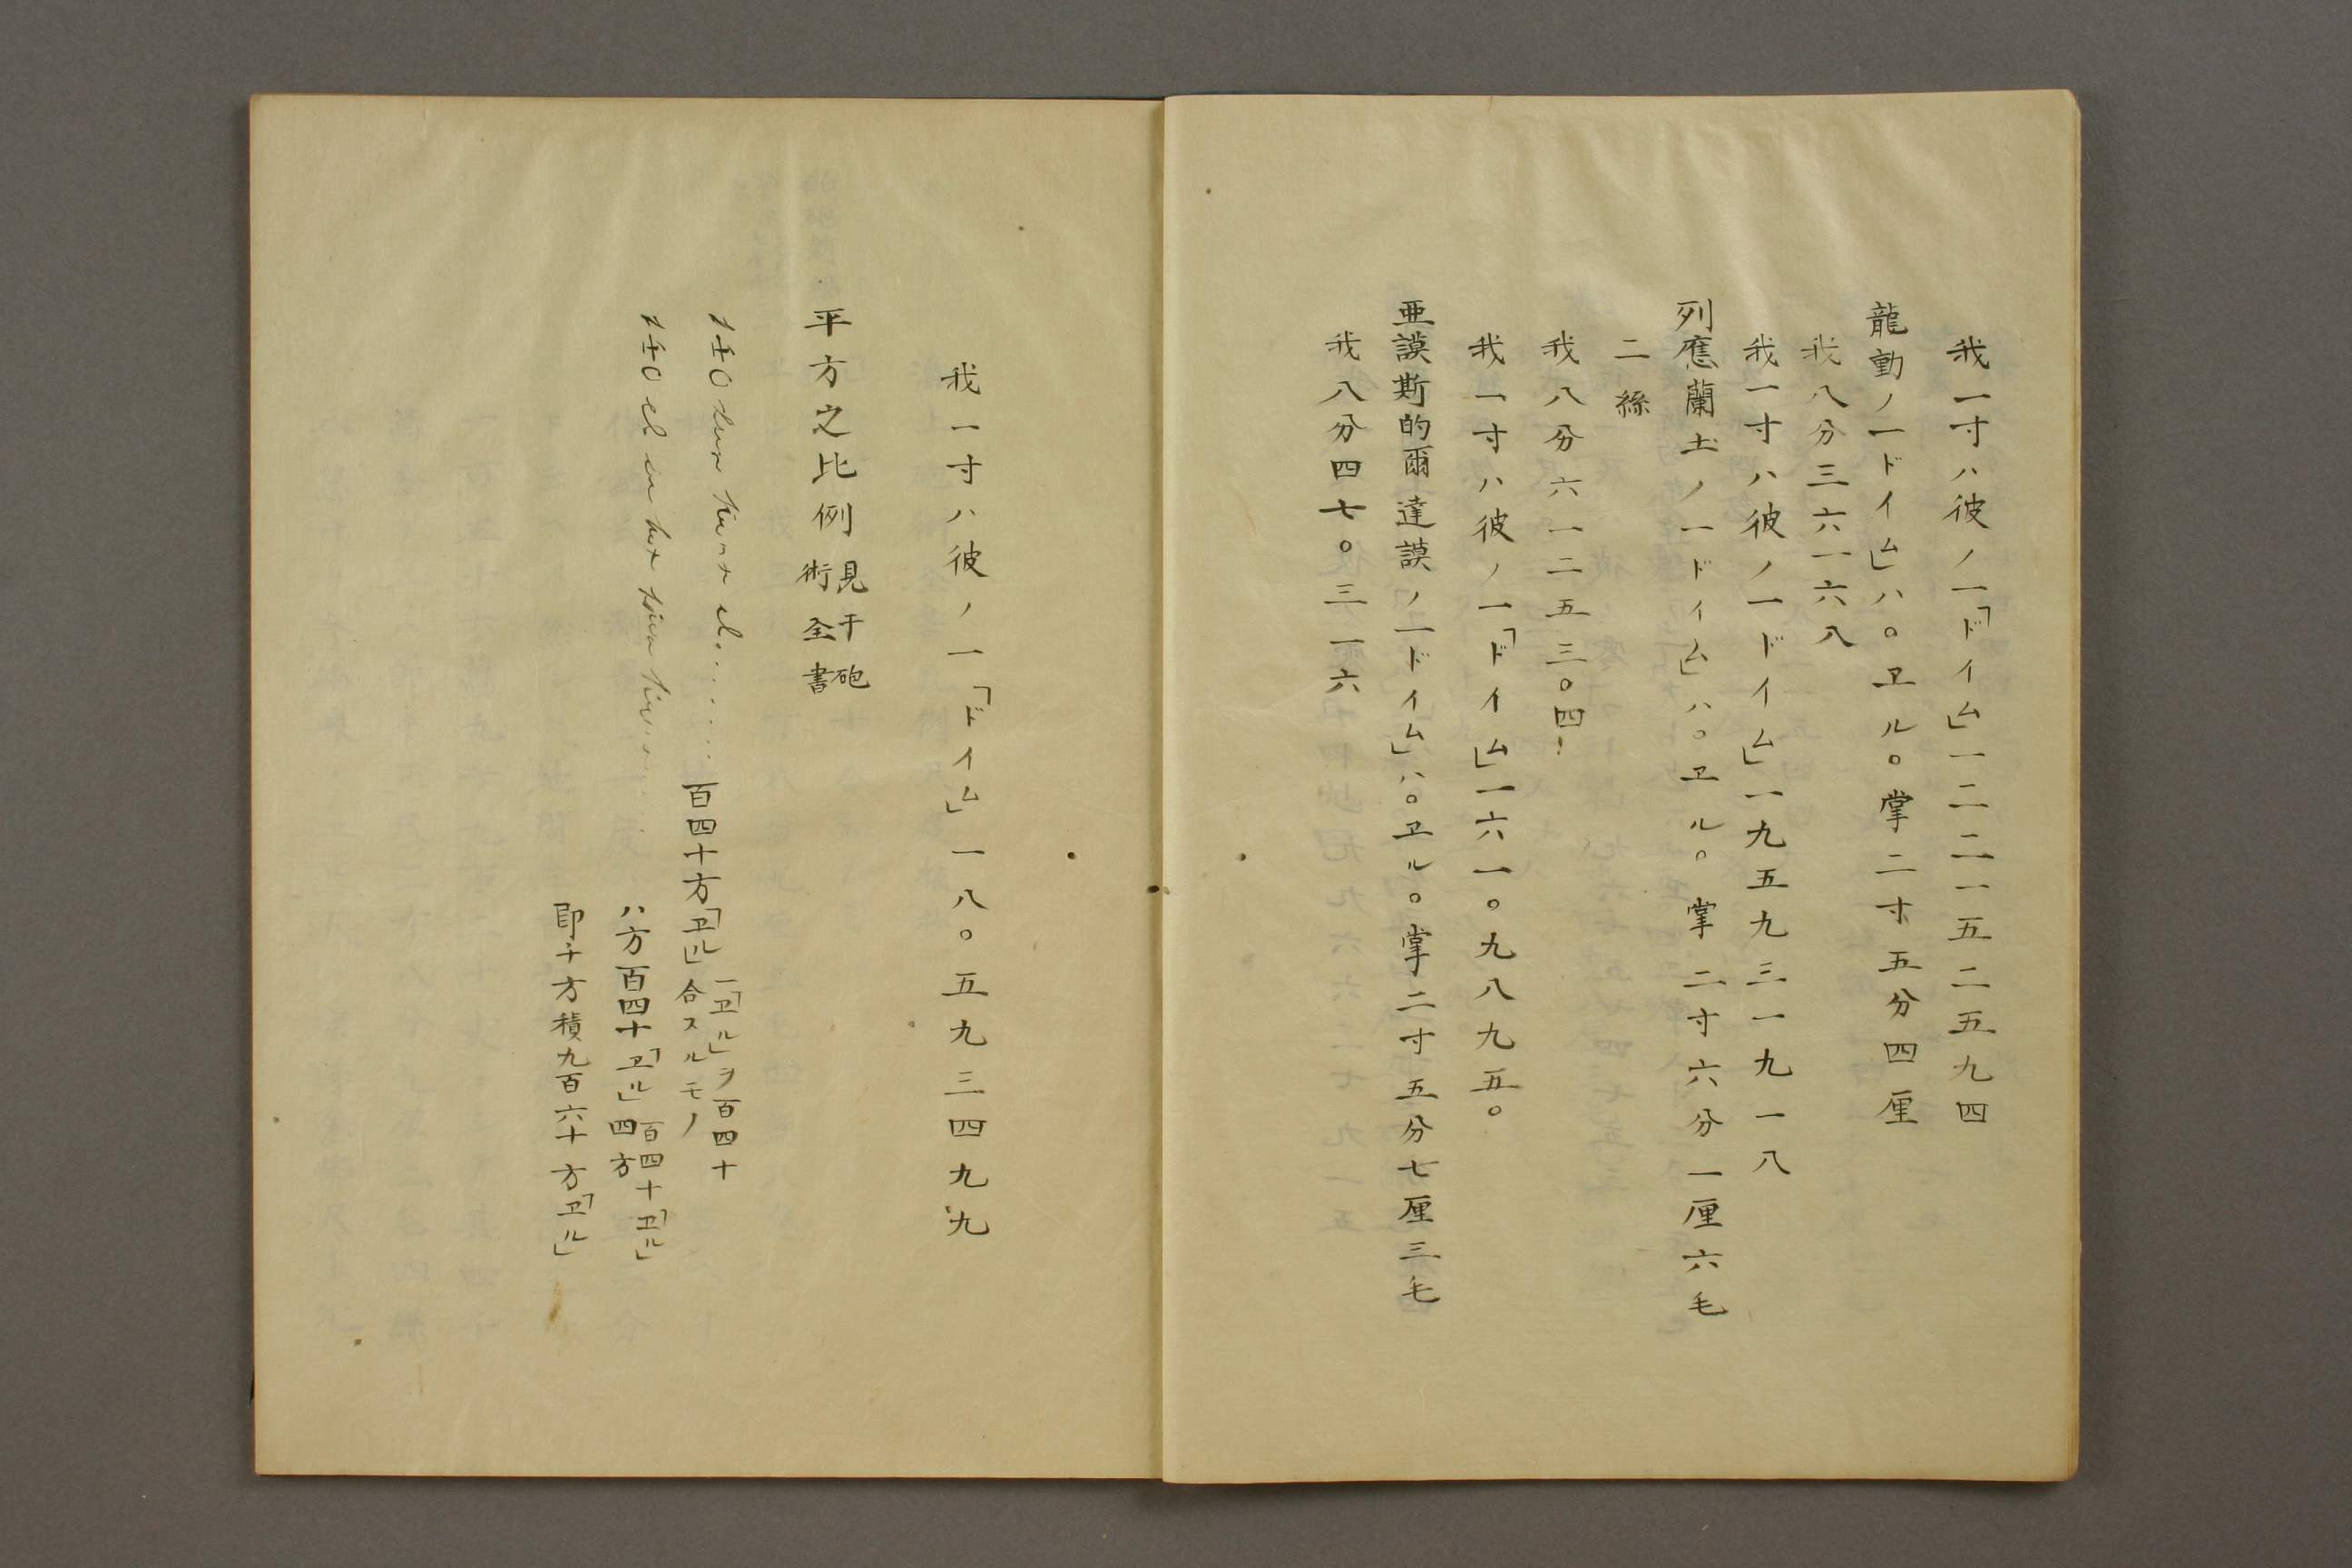 我一寸ハ彼ノ一「ドイム」一二二一五二五九四
龍動ノ一ドイム」ハ。ヱル。掌二寸五分四厘
我八分三六一六八
我一寸ハ彼ノ一ドイム」一九五九三一九一八
列應蘭土ノ一ドイム」ハ。ヱル。掌二寸六分一厘六毛
二絲
我八分六一二五三。四!
我一寸ハ彼ノ一「ドイム」一六一。九八九五。
亜謨斯的爾達謨ノ一ドイム」ハ。ヱル。掌二寸五分七厘三毛
我八分四七。三一六
我一寸ハ彼ノ一「ドイム」一八。五九三四九九
平方之比例 見于砲術全書
140 el.......百四十方「ヱル」一「ヱル」ヲ百四十合スルモノ
140 el in het......ハ方百四十「ヱル」百四十「ヱル」四方
即千方積九百六十方「ヱル」